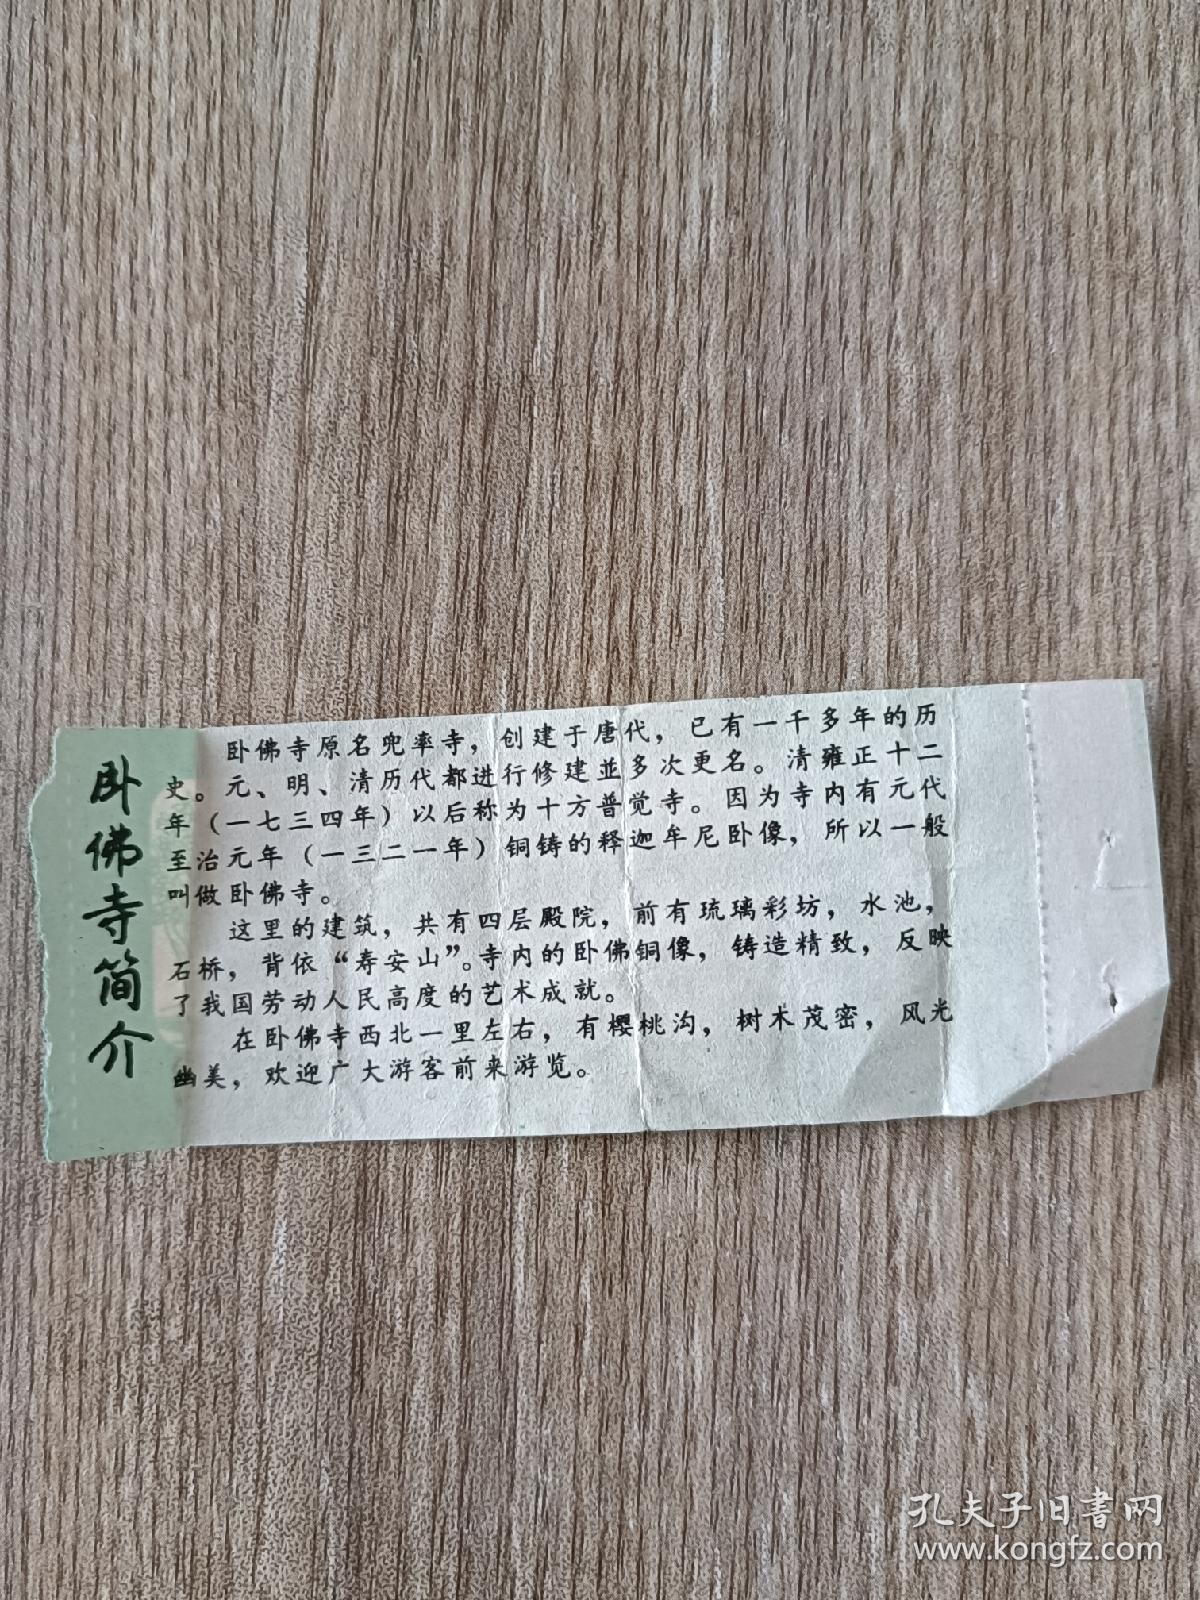 卧佛寺简介
卧佛寺原名兜率寺，创建于唐代，已有一千多年的历
史。元、明、清历代都进行修建並多次更名。清雍正十二
年（一七三四年）以后称为十方普觉寺。因为寺内有元代
至治元年（一三二一年）铜铸的释迦牟尼卧像，所以一般
叫做卧佛寺。
这里的建筑，共有四层殿院，前有琉璃彩坊，水池，
石桥，背依“寿安山”。寺内的卧佛铜像，铸造精致，反映
了我国劳动人民高度的艺术成就。
在卧佛寺西北一里左右，有樱桃沟，树木茂密，风光
幽美，欢迎广大游客前来游览。
孔夫子旧書网
www.kongfz.com